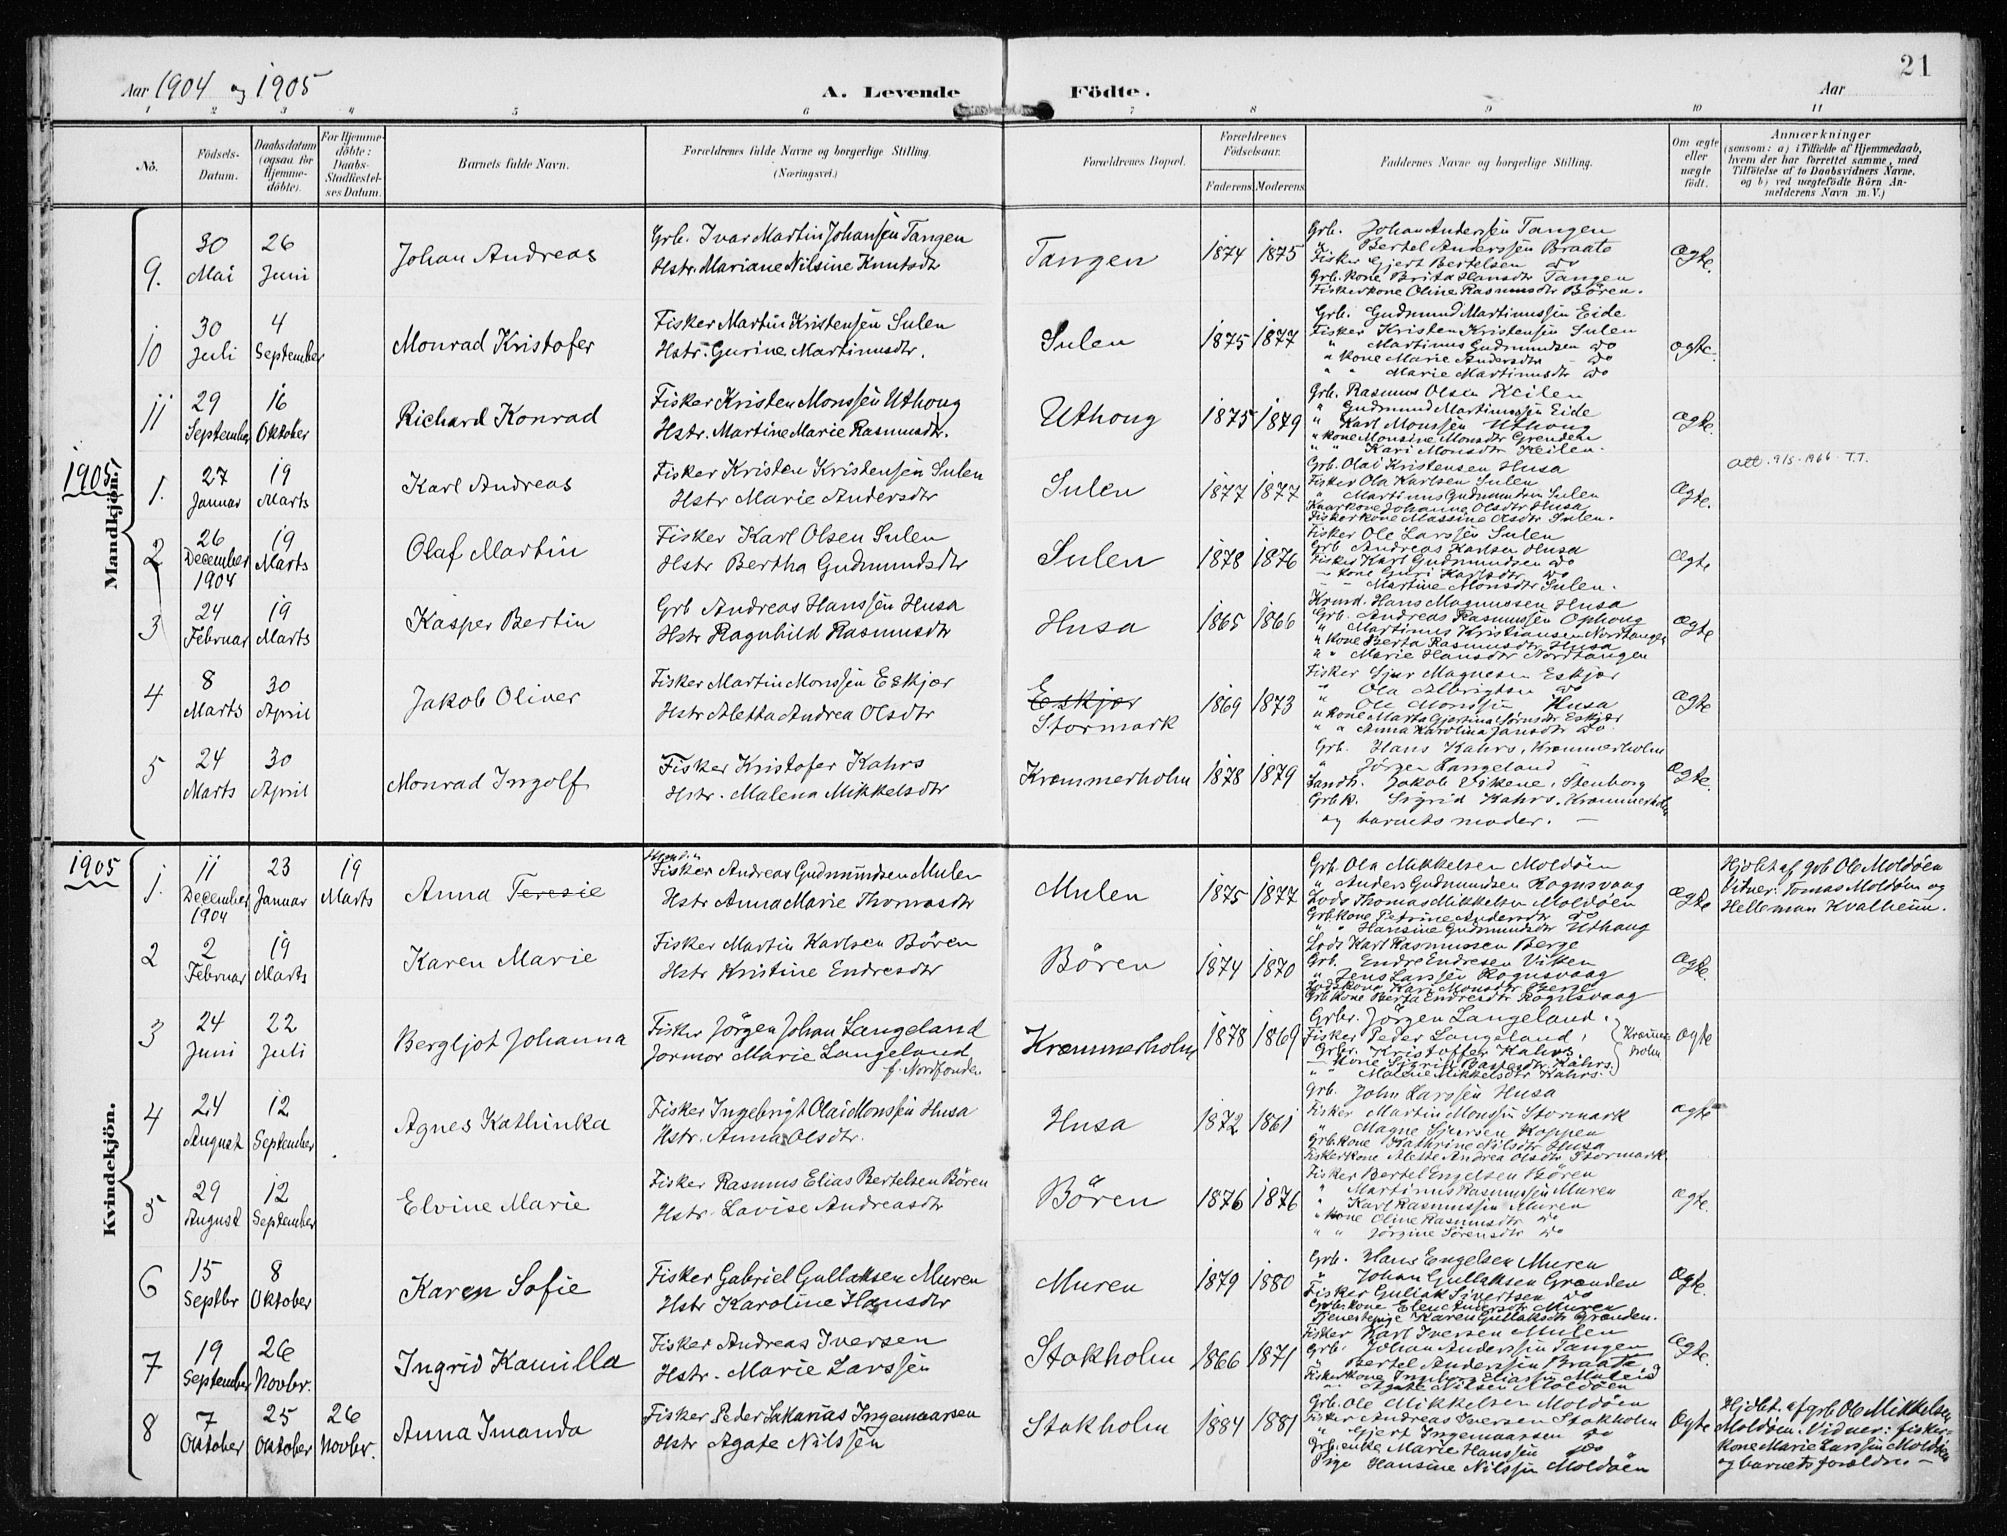 Aar 1904 og 1905
A. Levende Födte.
Aar
21
1 2 3 4 5 6 7 8 9 10 11
No.
Födsels-Datum.
Daabsdatum (ogsaa for Hjemme-döbte).
For Hjemme-döbte: Daabs-Stadfæstel-ses Datum.
Barnets fulde Navn.
Forældrenes fulde Navne og borgerlige Stilling. (Næringsvei.)
Forældrenes Bopæl.
Forældrenes Födselsaar.
Faderens Moderens
Faddernes Navne og borgerlige Stilling.
Om ægte eller uægte födt.
Anmærkninger
(saasom: a) i Tilfælde af Hjemmedaab,
hvem der har forrettet samme, med
Tilföielse af to Daabsvidners Navne,
og b) ved uægtefödte Börn An-
melderens Navn m. V.)
Mandkjön.
9. 30 Mai 26 Juni
Johan Andreas
Grb. Ivar Martin Johansen Tangen
Hstr. Mariane Nilsine Knutsdtr
Tangen 1874 1875
Grb. Johan Anderssen Tangen
" Bertel Anderssen Braate
Fisker Gjert Bertelsen do
Grb. kone Brita Hansdtr Tangen
Fiskerkone Oline Rasmusdtr Bören.
Ægte.
10 30 Juli 4 September
Monrad Kristofer
Fisker Martin Kristensen Sulen
Hstr. Gurine Martinusdtr.
Sulen 1875 1877
Grb. Gudmund Martinussen Eide
Fisker Kristen Kristensen Sulen
" Martinus Gudmundsen do
" kone Marie Andersdtr - do
" " Marie Martinusdtr do
ægte.
11 29 September 16 Oktober
Richard Konrad
Fisker Kristen Monssen Uthoug
Hstr. Martine Marie Rasmusdtr.
Uthoug 1875 1879
Grb. Rasmus Olsen Keilen
" Gudmund Martinussen Eide
" Karl Monssen Uthoug
" kone Monsine Monsdtr Grenden
" " Kari Monsdtr Keilen.
Ægte.
1905
1. 27 Januar 19 Marts
Karl Andreas
Fisker Kristen Kristensen Sulen
Hstr Marie Andersdtr
Sulen 1877 1877
Grb. Olai Kristensen Husa
Fisker Ola Karlsen Sulen
" Martinus Gudmundsen Sulen
Kaarkone Johanne Olsdtr Husa
Fiskerkone Massine Olsdtr Sulen.
Ægte.
att. 9/5-1966 T.T.
2 26 December 1904 19 Marts
Olaf Martin
Fisker Karl Olsen Sulen
Hstr Bertha Gudmundsdtr
Sulen 1878 1876
Fisker Ole Larssen Sulen
Grb Andreas Karlsen Husa
Fisker Karl Gudmundsen do
- kone Guri Karlsdtr do
- - Martine Monsdtr Sulen.
Ægte
3 24 Februar 19 Marts
Kasper Bertin
Grb Andreas Hanssen Husa
Hstr Ragnhild Rasmusdtr
Husa 1865 1866
Hans Magnussen Husa
Grb. Andreas Rasmussen Ophoug
" Martinus Kristiansen Nordtangen
" kone Berta Rasmusdtr Husa
" " Marie Hansdtr Nordtangen
Ægte
4 8 Marts 30 April
Jakob Oliver
Fisker Martin Monssen Eskjær
Hstr Aletta Andrea Olsdtr
Eskjær
Stormark 1869 1873
Fisker Sjur Magnesen Eskjær
" Ola Albrigtsen do
" Ole Monssen Husa
" kone Marta Gjertina Sörnsdtr Eskjær
" " Anna Karolina Jansdtr do
Ægte
5 24 Marts 30 April
Monrad Ingolf
Fisker Kristofer Kahrs
Hstr. Malena Mikkelsdtr
Kræmmerholm 1878 1879
Grb. Hans Kahrs, Kræmmerholm
" Jörgen Langeland "
Landh. Jakob Vikene, Stenborg
Grbk. Sigrid Kahrs, Kræmmerholm
og barnets moder. -
Ægte.
Kvindekjön.
1905
1. 11 December 1904 23 Januar 19 Marts
Anna Teresie
Fisker Andreas Gudmundsen Mulen
Hstr Anna Marie Thomasdtr
Mulen 1875 1877
Grb Ola Mikkelsen Moldöen
" Anders Gudmundsen Rognsvaag
Lods Thomas Mikkelsen Moldöen
Grbkone Petrine Andersdtr do
" " Hansine Gudmundsdtr Uthoug
Ægte
Hjdbt af grb Ole Moldöen
Vidner: Tomas Moldöen og
Helleman Kvalheim.
2 2 Februar 19 Marts
Karen Marie
Fisker Martin Karlsen Bören
Hstr Kristine Endresdtr
Bören 1874 1870
Lods Karl Rasmussen Berge
Grb. Endre Endresen Vitsen
" Jens Larssen Rognsvaag
Lodskone Kari Monsdtr Berge
Grbkone Berta Endresdtr Rognsvaag
Ægte.
3 24 Juni 22 Juli
Bergljot Johanna
Fisker Jörgen Johan Langeland
Jormor Marie Langeland
f. Nordfonden
Kræmmerholm 1878 1869
Grbr. Jörgen Langeland.
Fisker Peder Langeland,
Grbr. Kristoffer Kahrs.
- kone Sigrid Bastesdtr Kahrs.
" " Malene Mikkelsdtr Kahrs.
Kræmmerholm
ægte
4 24 August 12 September
Agnes Kathinka
Fisker Ingebrigt Olai Monssen Husa
Hstr. Anna Olsdtr.
Husa 1872 1861
Grb. John Larssen Husa
Fisker Martin Monssen Stormark
" Magne Sjursen Koppen
Grbkone Kathrine Nilsdtr Husa
Fiskerkone Alette Andrea Olsdtr Stormark
ægte
5 29 August 12 September
Elvine Marie
Fisker Rasmus Elias Bertelsen Bören
Hstr. Lovise Andreasdtr
Bören 1876 1876
Fisker Bertel Engelsen Bören
" Martinus Rasmussen Muren
" Karl Rasmussen Muren
" kone Oline Rasmusdtr do
" " Jörgine Sörensdtr do
ægte.
6 15 Septbr 8 Oktober
Karen Sofie
Fisker Gabriel Gullaksen Muren
Hstr Karoline Hansdtr
Muren 1879 1880
Grb. Hans Engelsen Muren
" Johan Gullaksen Grænden
Fisker Gullak Sivertsen do
Grbkone Elen Andersdtr Muren
Tjenestepige Karen Gullaksdtr Grænden.
Ægte.
7 19 September 26 Novbr.
Ingrid Kamilla
Fisker Andreas Iversen
Hstr. Marie Larssen
Stokholm 1866 1871
Fisker Karl Iversen Mulen
Grb. Johan Anderssen Tangen
" Bertel Anderssen Braate
Fiskerkone Ingeborg Eliassen
" Agate Nilsen Moldöen
Ægte.
8 7 Oktober 25 Oktober 26 Novbr.
Anna Imanda
Fisker Peder Sakarias Ingemaarsen
Hstr Agate Nilssen
Stokholm 1884 1881
Grb. Ole Mikkelsen Moldöen
Fisker Andreas Iversen Stokholm
" Gjert Ingemaarsen do
Grb. enke Marie Hanssen do
Pige Hansine Nilssen Moldöen
Ægte
Hjdbt. af grb Ole Mikkelsen
Moldöen. Vidner: fisker-
kone Marie Larssen Moldöen
og barnets forældre -